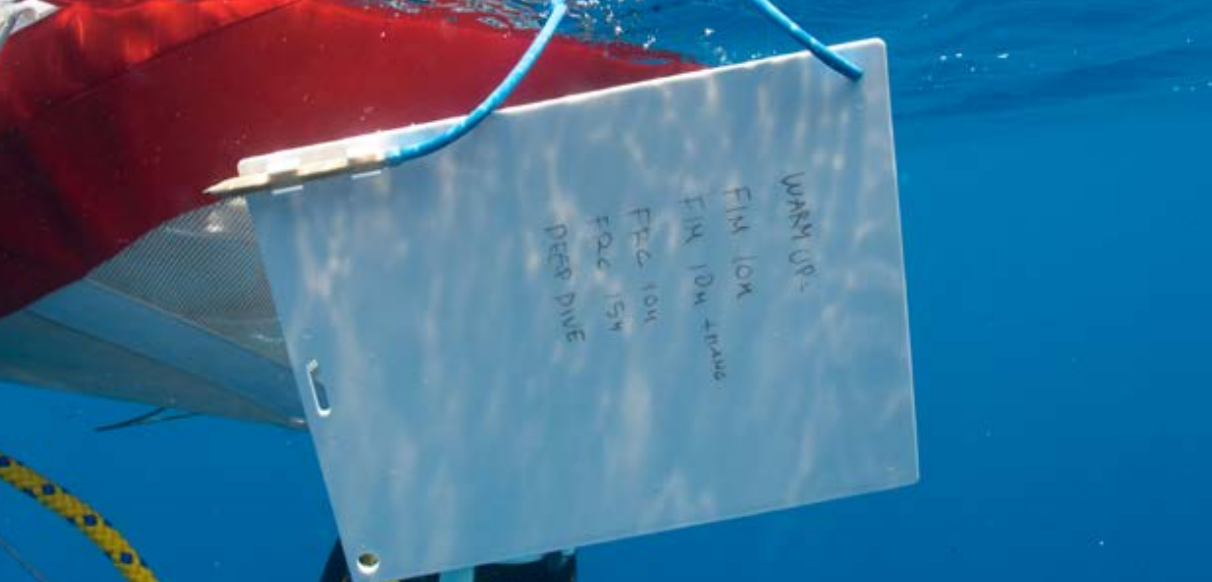 WARM UP:
FIM 10M
FIM 10M +HANG
FRC 10M
FRC 15M
DEEP DIVE